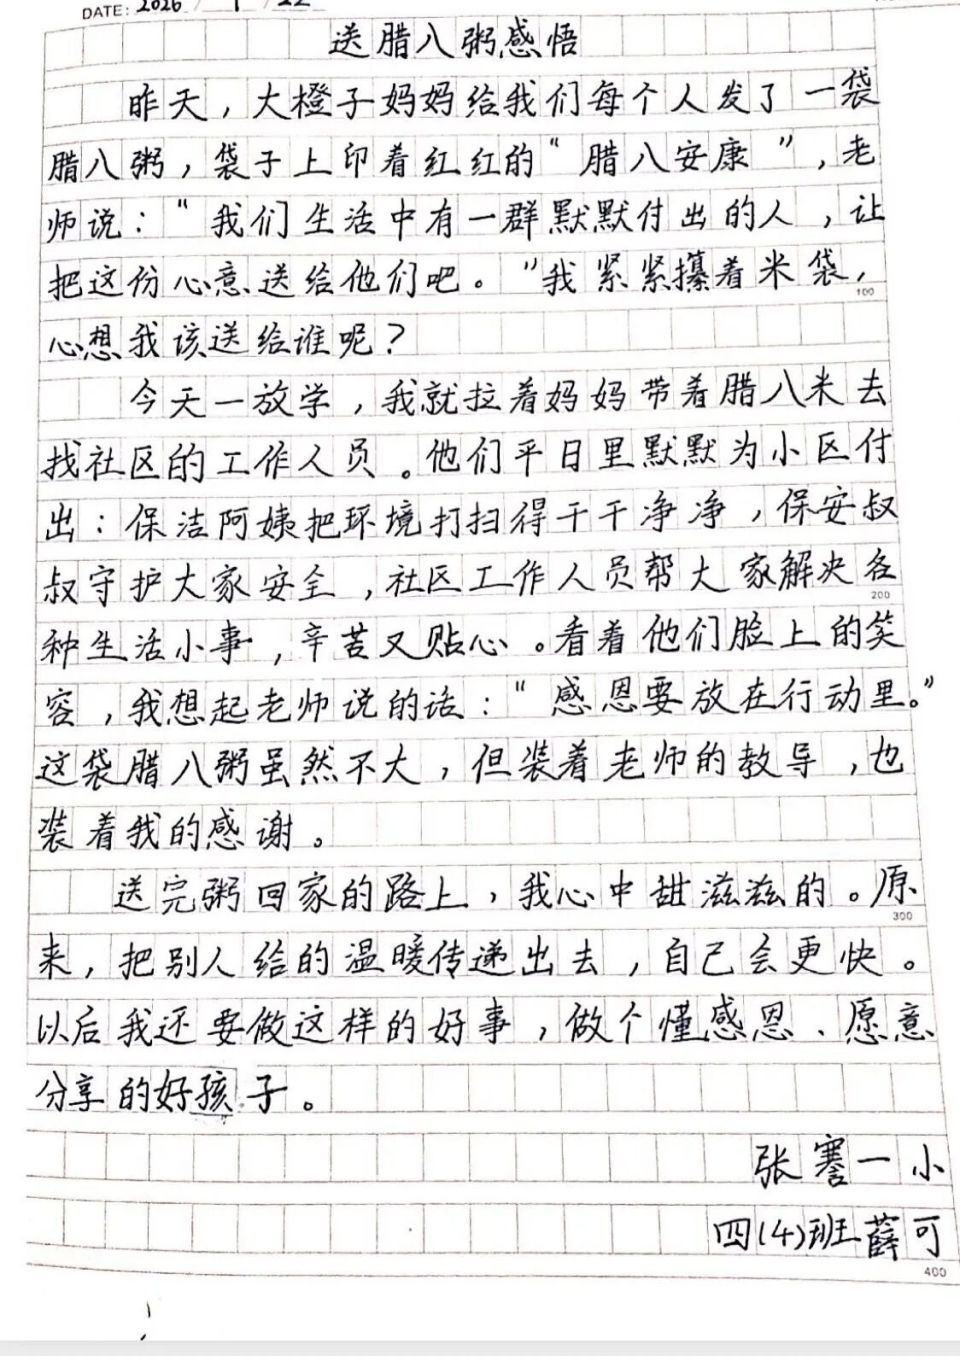 DATE: 2026 / 1 / 22
送腊八粥感悟
昨天，大橙子妈妈给我们每个人发了一袋
腊八粥，袋子上印着红红的“腊八安康”，老
师说：“我们生活中有一群默默付出的人，让
把这份心意送给他们吧。”我紧紧攥着米袋，
100
心想我该送给谁呢？
今天一放学，我就拉着妈妈带着腊八米去
找社区的工作人员。他们平日里默默为小区付
出：保洁阿姨把环境打扫得干干净净，保安叔
叔守护大家安全，社区工作人员帮大家解决各
200
种生活小事，辛苦又贴心。看着他们脸上的笑
容，我想起老师说的话：“感恩要放在行动里。”
这袋腊八粥虽然不大，但装着老师的教导，也
装着我的感谢。
送完粥回家的路上，我心中甜滋滋的。原
300
来，把别人给的温暖传递出去，自己会更快。
以后我还要做这样的好事，做个懂感恩、愿意
分享的好孩子。
张謇一小
四(4)班薛可
400